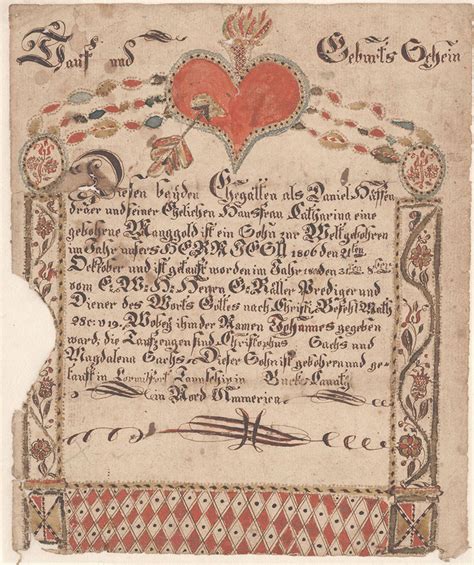 Tauf und Geburts Schein
Diesen beyden Ehegatten als Daniel Haffen
dräer und seiner Ehelichen Hausfrau Catharina eine
gebohrne Manggold ist ein Sohn zur Welt gebohren
im Jahr unsers HERRN IESU 1806 den 21ten
October und ist getauft worden im Jahr den 31ten
vom E. W. H. Herrn G. Räller Prediger und
Diener des Worts Gottes nach Christi Befehl Math
28 c: v 19. Wobey ihm der Namen Johannes gegeben
ward, die Taufzeugen sind Christophus Sachs und
Magdalena Sachs Dieser Schrift gebohren und ge-
tauft in Taunschip in Bucks Caunty
in Nord Ammerica